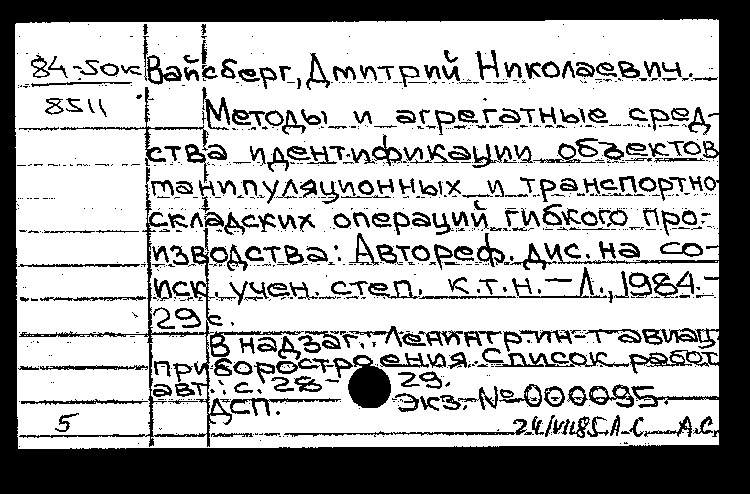 84-50к Вайсберг, Дмитрий Николаевич.
8511 Методы и агрегатные сред-
ства идентификации объектов
манипуляционных и транспортно-
складских операций гибкого про-
изводства: Автореф. дис. на со-
иск. учен. степ. к.т.н. — Л., 1984. -
29 с.
В надзаг.: Ленингр. ин-т авиац.
приборостроения. Список работ
авт.: с. 28- 29.
ДСП. Экз. № 000095.
5 24/VII85 А.С. А.С.